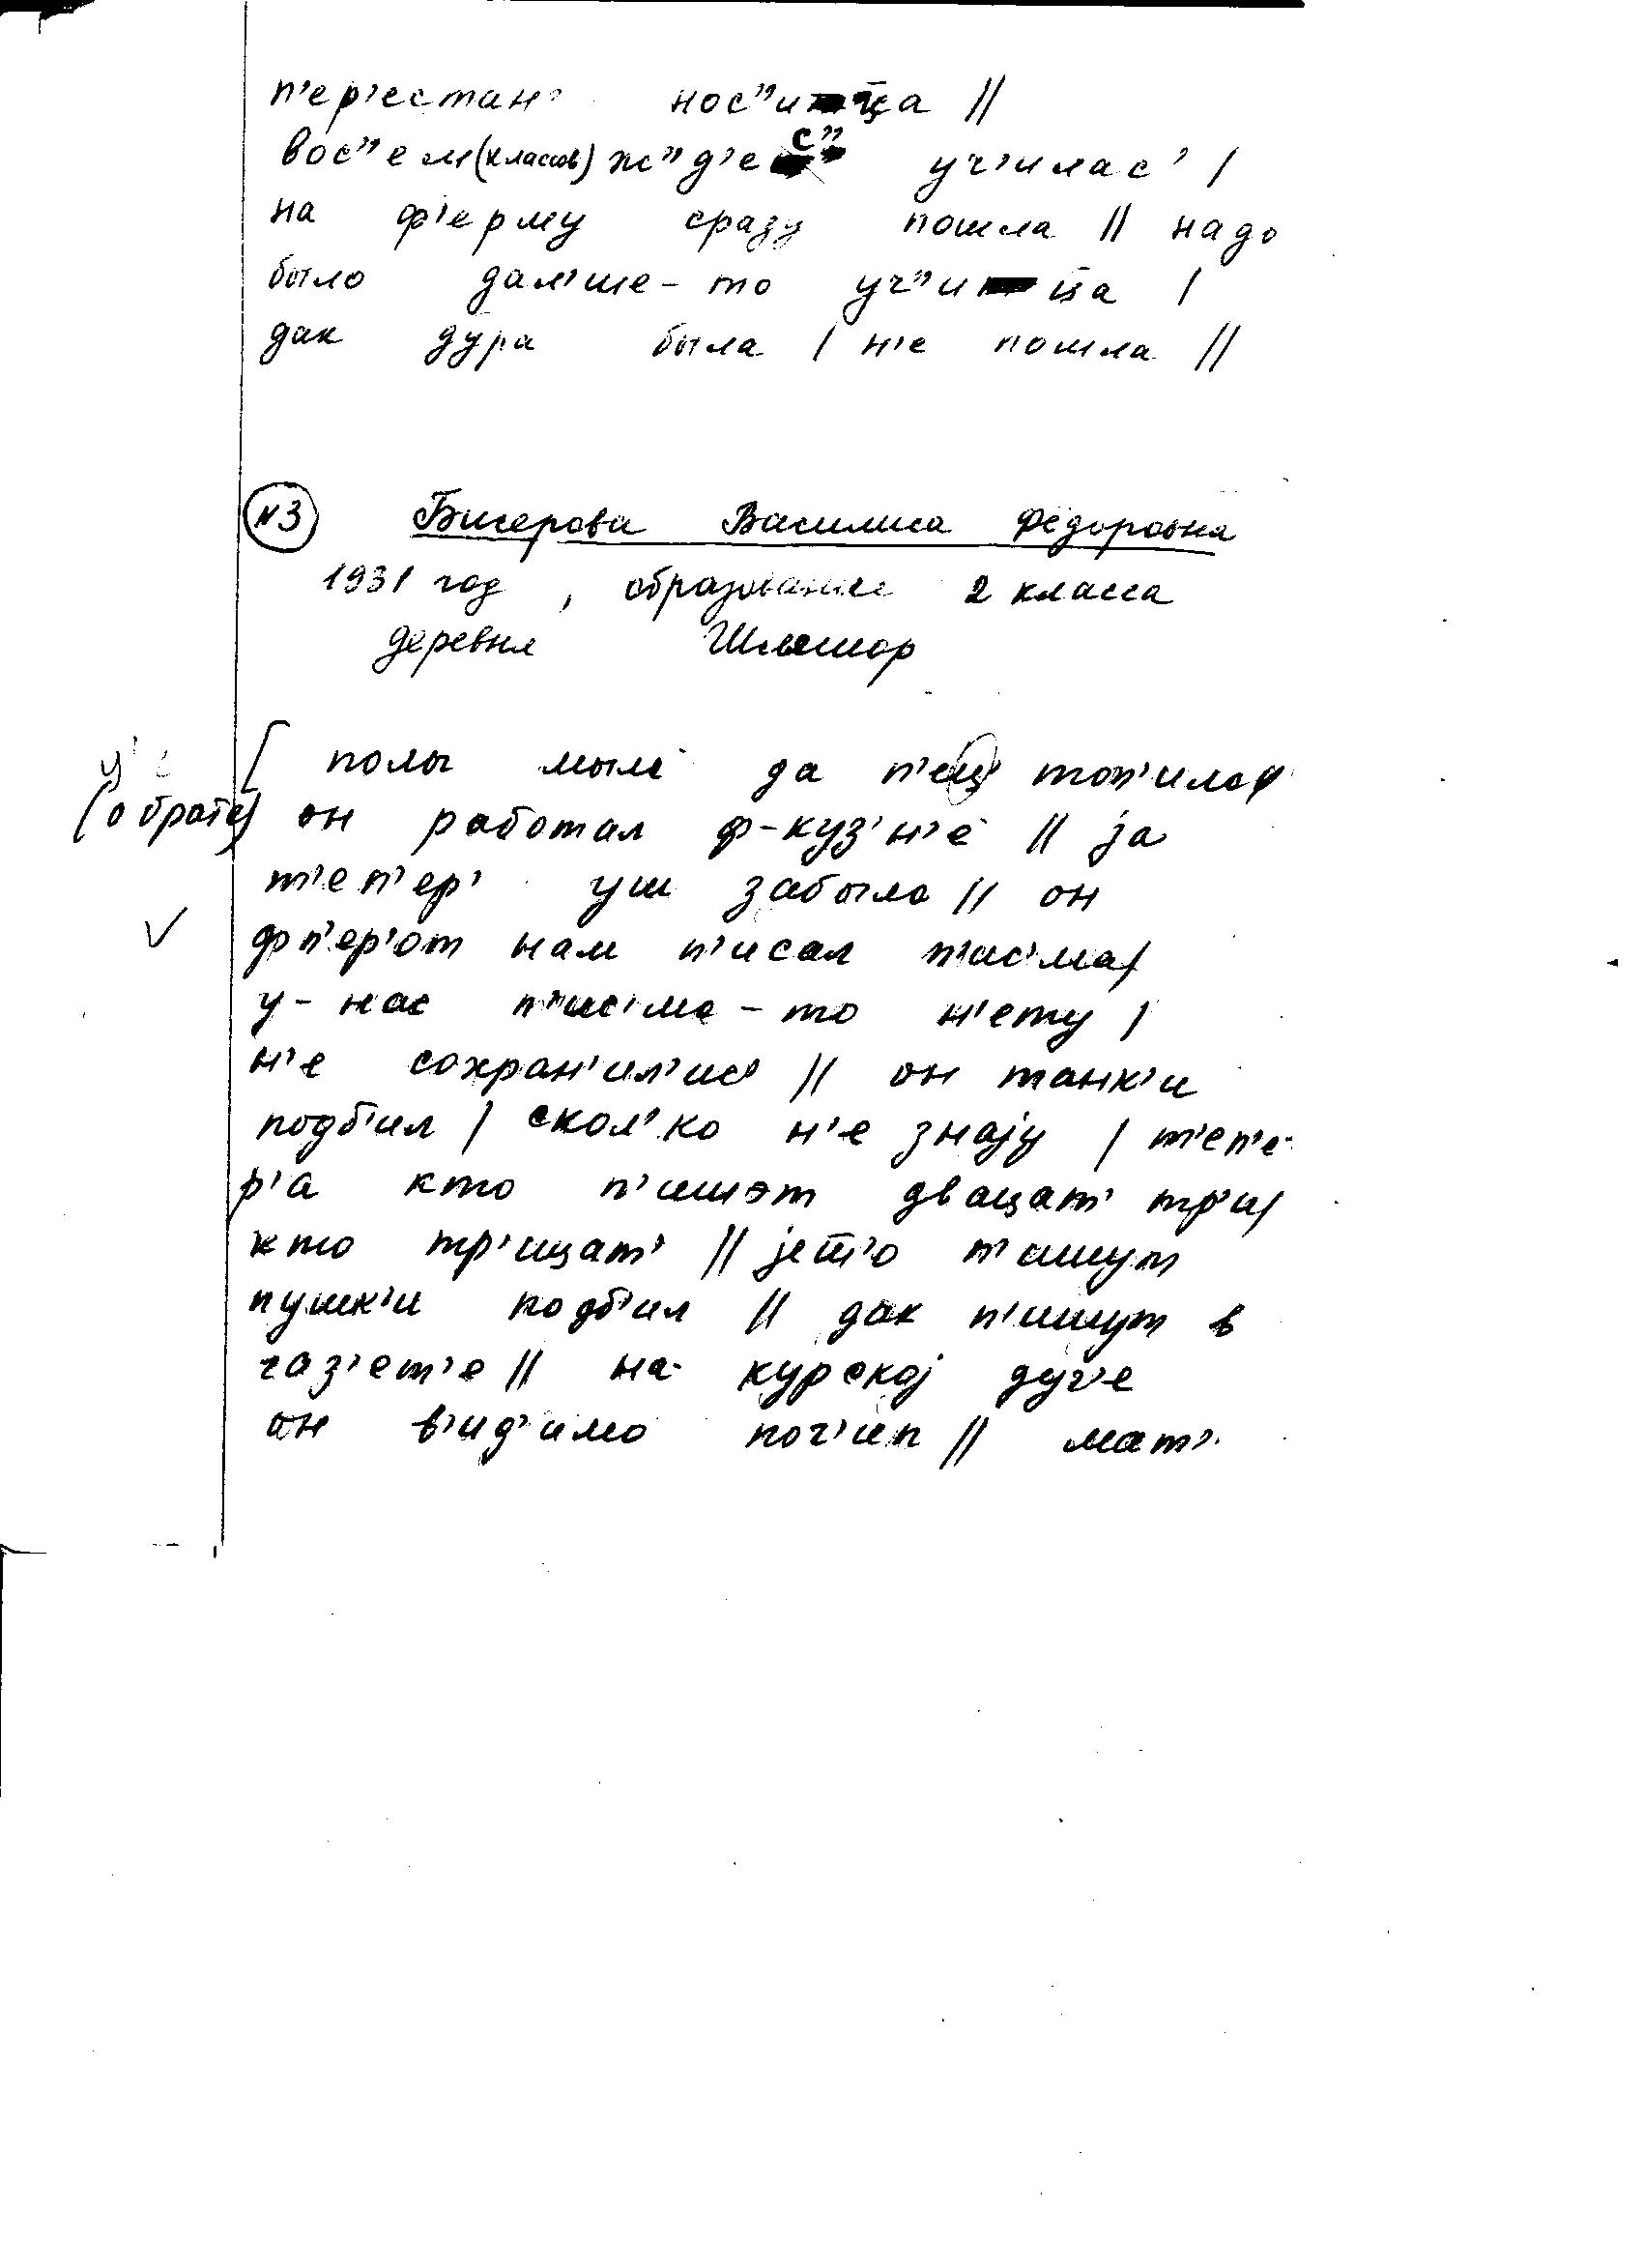 п'ер'естан' нос"иц̄а //
вос"ем (классов) ж"д'ес" уч'илас' /
на ф'ерму сразу пошла // надо
было дал'ше-то уч"иц̄а /
дак дура была / н'е пошла //
№3 Бисерова Василиса Фёдоровна
1931 год, образование 2 класса
деревня
полы мыла да п'ец' топ'ила /
(о брате) он работал ф-куз'н'е // jа
т'еп'ер' уш забыла // он
фп'ер'от нам п'исал п'ис'ма /
у-нас п'ис'ма-то н'ету /
н'е сохран'ил'ис' // он танк'и
подб'ил / скол'ко н'е знаjу / т'еп'е-
р'а кто п'ишэт двацат' тр'и /
кто тр'ицат' // jещ'о п'ишут
пушк'и подб'ил // дак п'ишут в
газ'ет'е // на курскоj дуг'е
он в'ид'имо пог'ип // мат'